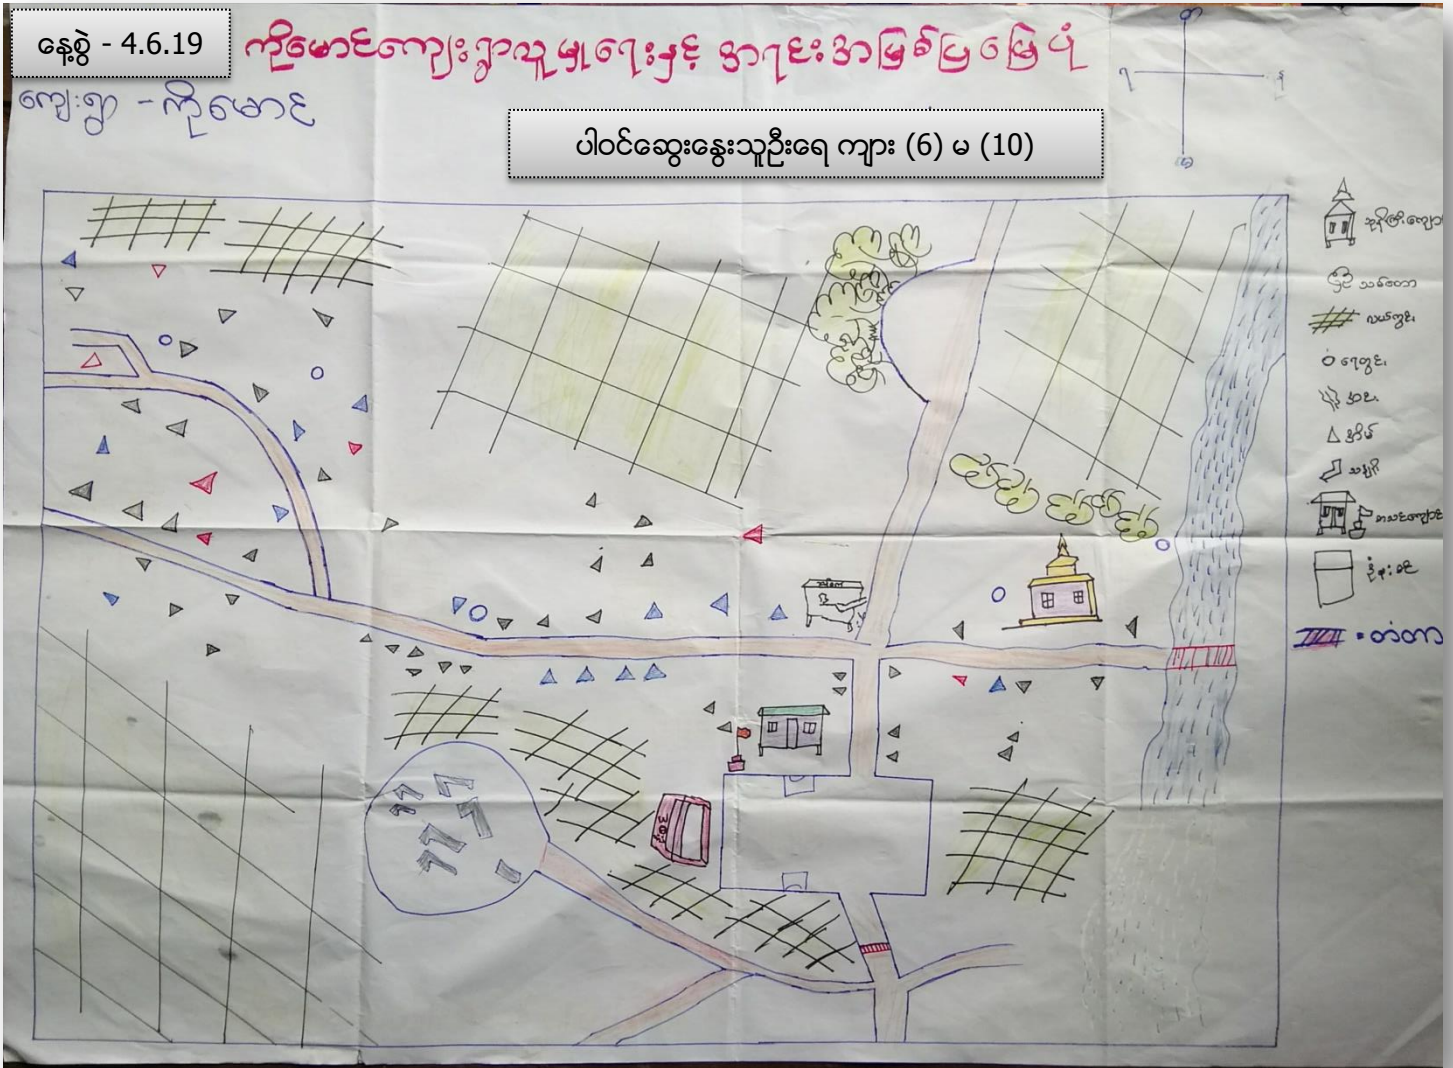 နေ့စွဲ - 4.6.19
ကိုမောင်ကျေးရွာလူမှုရေးနှင့် အရင်းအမြစ်ပြမြေပုံ
ကျေးရွာ - ကိုမောင်
ပါဝင်ဆွေးနွေးသူဦးရေ ကျား (6) မ (10)
တ
ရ
န
မ
ဘုန်းကြီးကျောင်
သစ်တော
လယ်ကွင်း
ရေတွင်း
အိမ်
သချႋုင်း
စာသင်ကျောင်
= တံတား